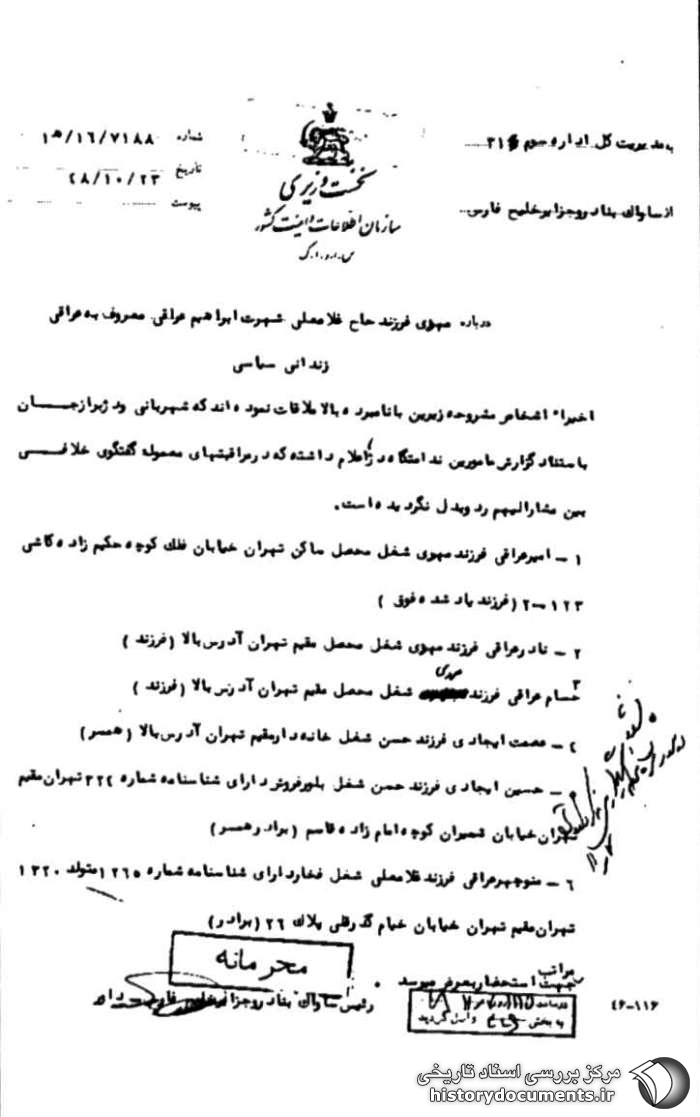 به مدیریت کل اداره سوم ۳۱۶
از ساواک بنادر و جزایر خلیج فارس
نخست وزیری
سازمان اطلاعات و امنیت کشور
س.ا.و.ا.ک
شماره ۷۱۸۸/۱۶/ه‍۱
تاریخ ۴۸/۱۰/۲۳
پیوست
درباره مهدی فرزند حاج غلامعلی شهرت ابراهیم عراقی معروف به عراقی
زندانی سیاسی
اخیراً اشخاص مشروحه زیرین با نامبرده بالا ملاقات نموده‌اند که شهربانی ودژ برازجان
باستناد گزارش مامورین ندامتگاه دژ اعلام داشته که در مراقبتهای معموله گفتگوی خلافی
بین مشارالیهم رد و بدل نگردیده است.
۱ - امیر عراقی فرزند مهدی شغل محصل ساکن تهران خیابان فلک کوچه حکیم زاده کاشی
۱۲۳-۲ (فرزند یاد شده فوق )
۲ - نادر عراقی فرزند مهدی شغل محصل مقیم تهران آدرس بالا (فرزند )
۳ حسام عراقی فرزند مهدی شغل محصل مقیم تهران آدرس بالا (فرزند )
۴ - عصمت ایجادی فرزند حسن شغل خانه دار مقیم تهران آدرس بالا (همسر)
۵ - حسین ایجادی فرزند حسن شغل بلور فروش دارای شناسنامه شماره ۳۲۴ تهران مقیم
تهران خیابان شمیران کوچه امام زاده قاسم (برادر همسر)
۶ - منوچهر عراقی فرزند غلامعلی شغل فخار دارای شناسنامه شماره ۱۲۶۵ متولد ۱۳۲۰
تهران مقیم تهران خیابان خیام گذر قلی پلاک ۲۶ (برادر)
مراتب
جهت استحضار بعرض میرسد .
محرمانه
رئیس ساواک بنادر و جزایر خلیج فارس
به بخش واصل گردید
۴۶-۱۱۶
مرکز بررسی اسناد تاریخی
historydocuments.ir